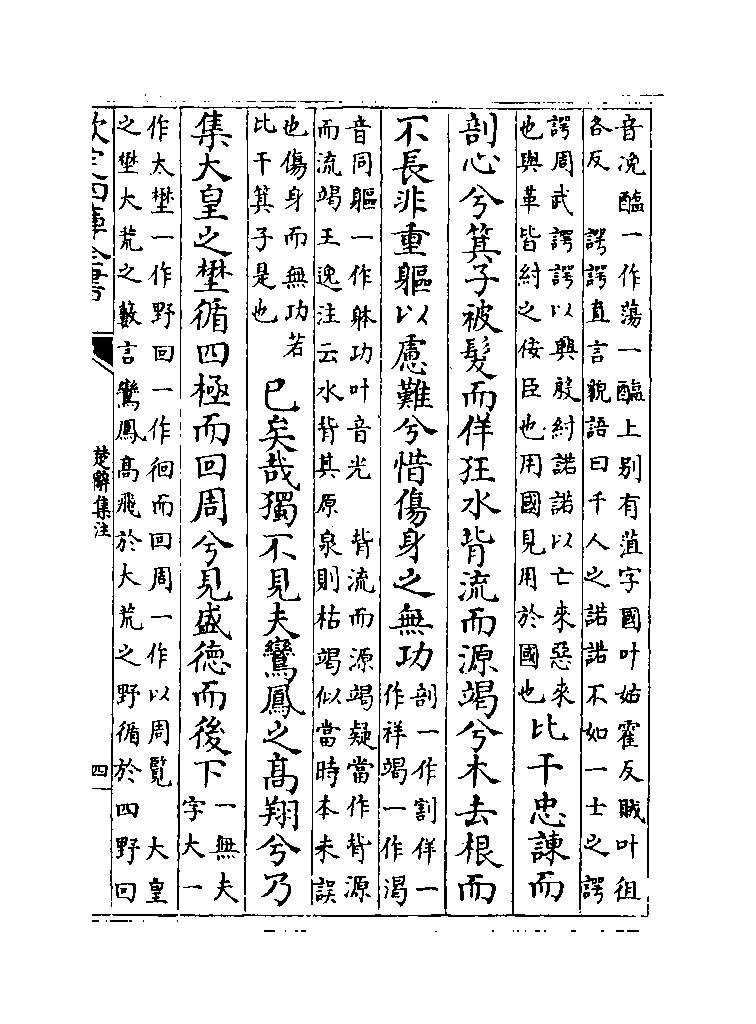 音浼醢一作蕩一醢上别有菹字國叶姑霍反賊叶徂
各反　諤諤直言貌語曰千人之諾諾不如一士之諤
諤周武諤諤以興殷紂諾諾以亡來惡來
也與革皆紂之佞臣也用國見用於國也
比干忠諫而
剖心兮箕子被髮而佯狂水背流而源竭兮木去根而
不長非重軀以慮難兮惜傷身之無功
剖一作割佯一
作祥竭一作渴
音同軀一作躰功叶音光　背流而源竭疑當作背源
而流竭王逸注云水背其原泉則枯竭似當時本未誤
也傷身而無功若
比干箕子是也
已矣哉獨不見夫鸞鳳之高翔兮乃
集大皇之壄循四極而回周兮見盛德而後下
一無夫
字大一
作太壄一作野回一作徊而回周一作以周覽　大皇
之壄大荒之藪言鸞鳳高飛於大荒之野循於四野回
欽定四庫全書
楚辭集注
四